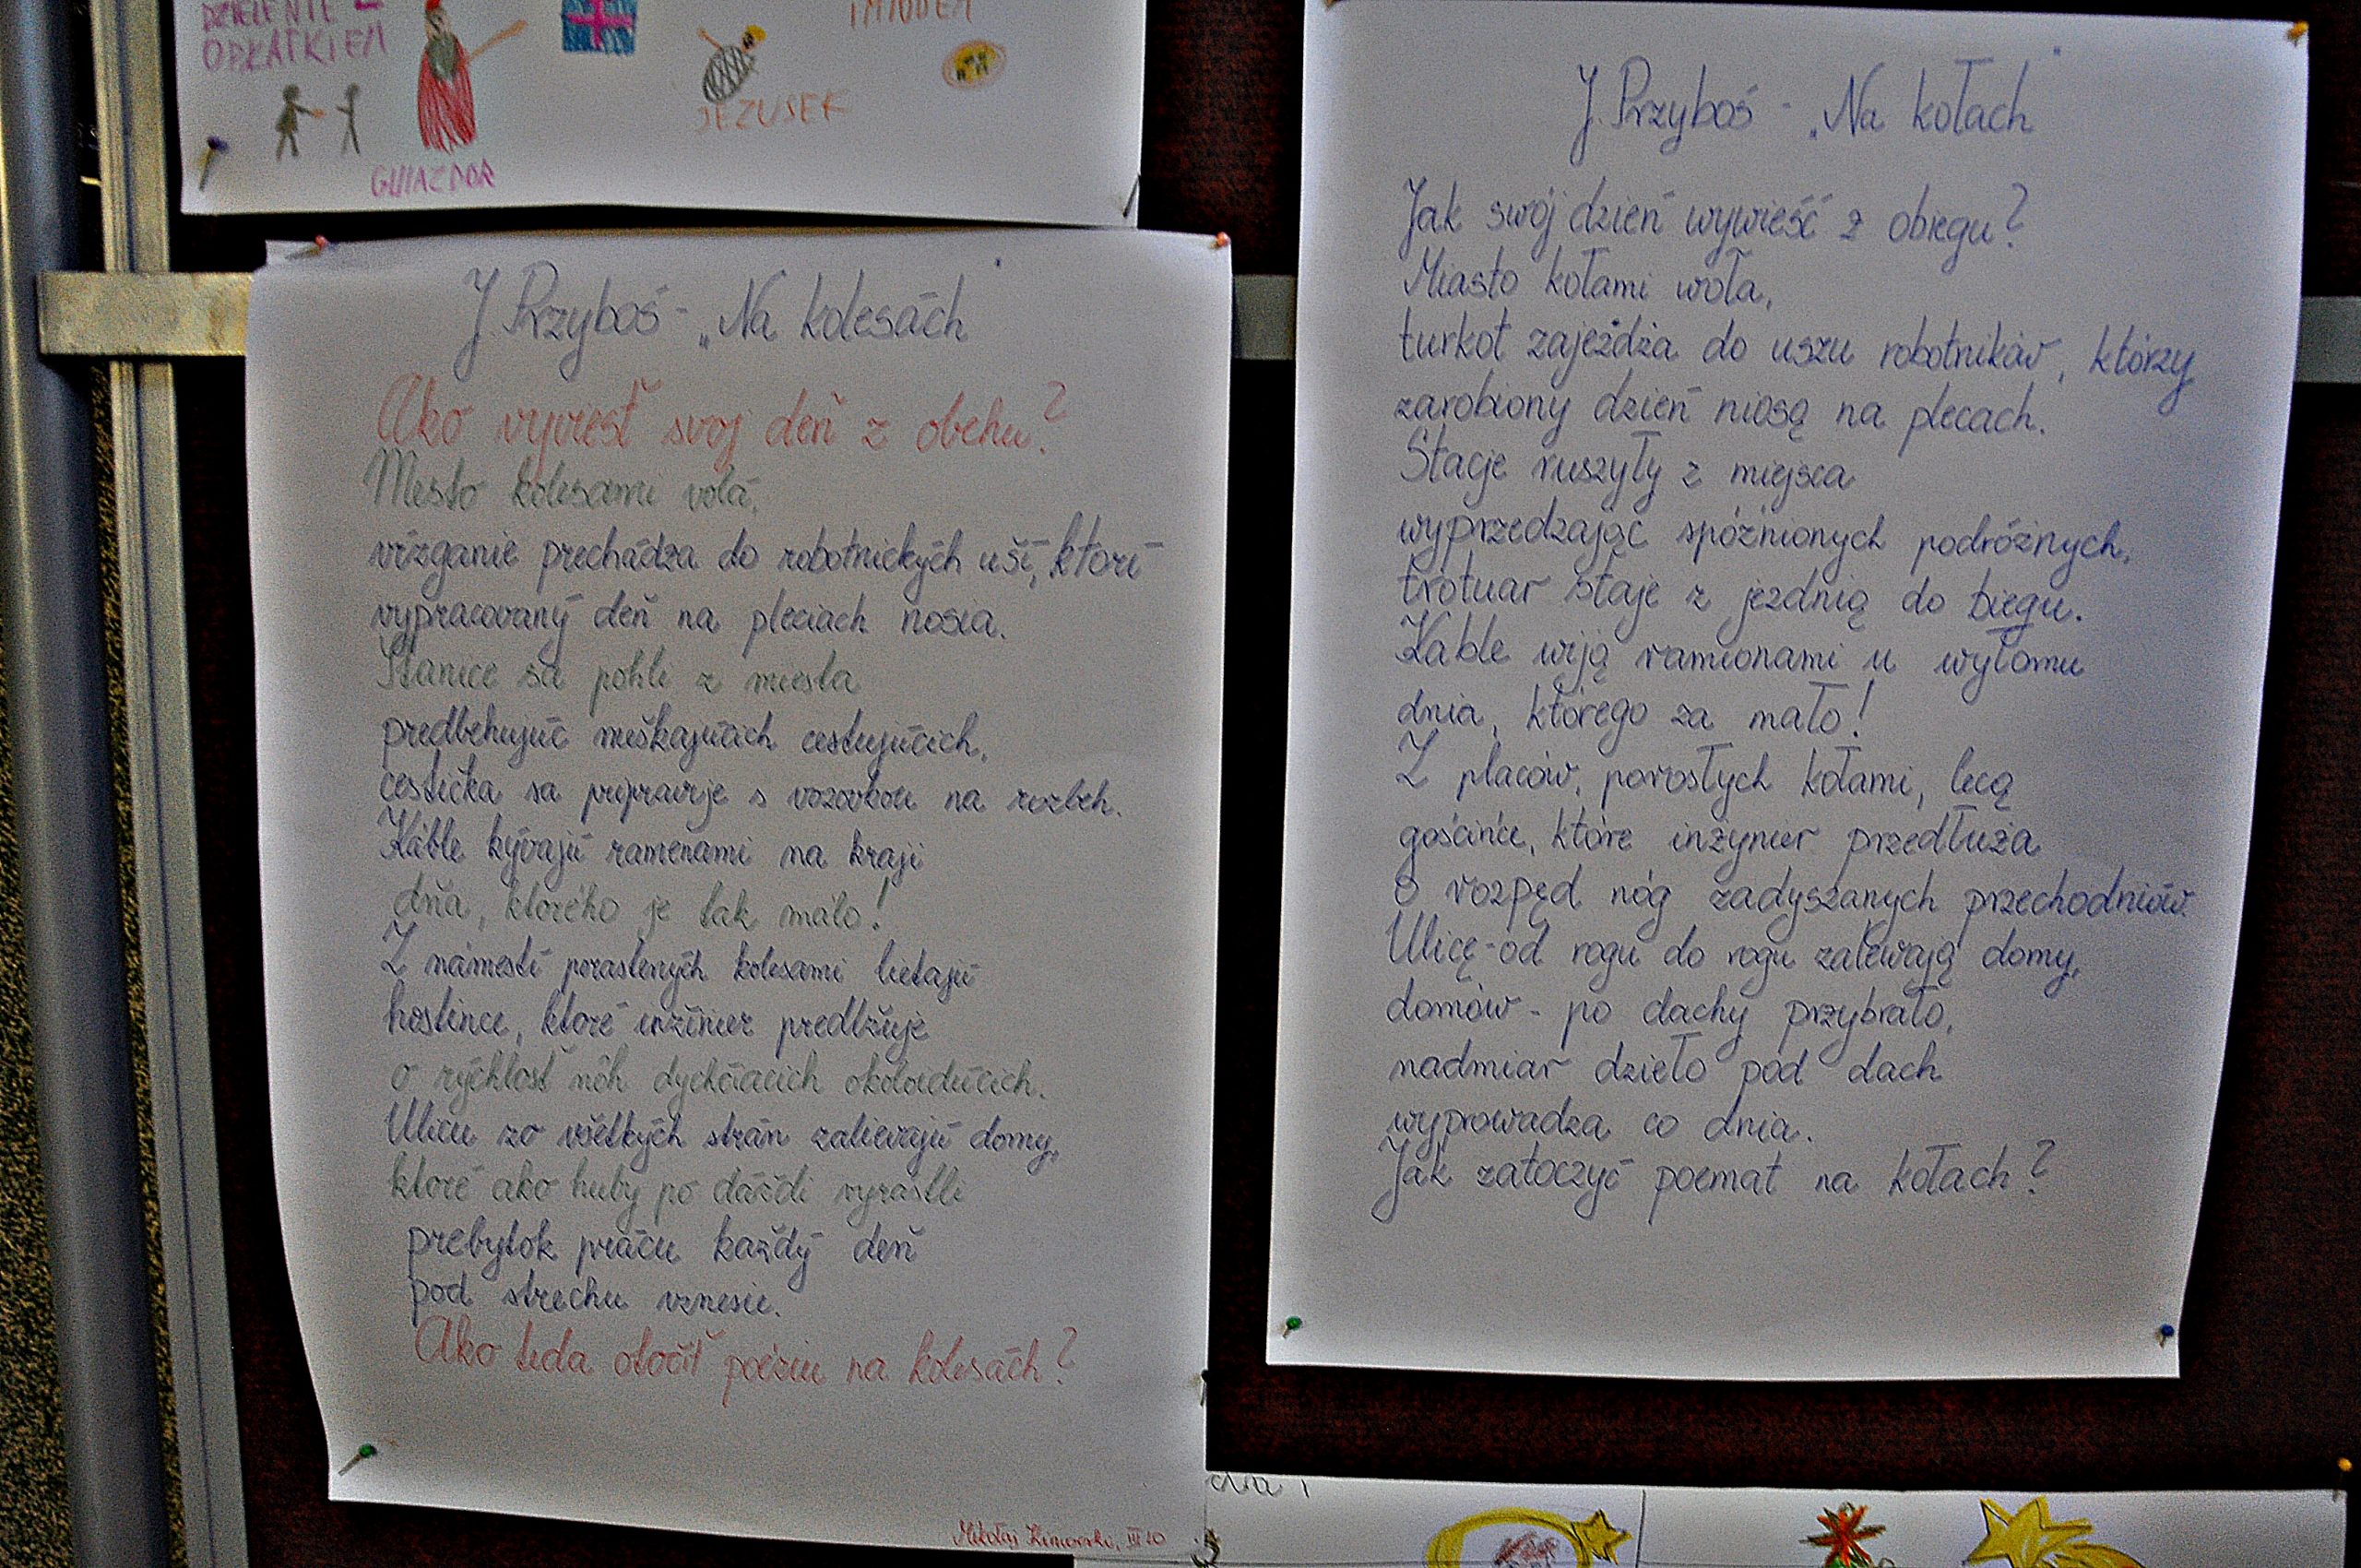 DZIELENIE
OPŁATKIEM
GWIAZDOR
JEZUSEK
J. Przyboś - „Na kolesách"
Ako vyviesť svoj deň z obehu?
Mesto kolesami volá,
vŕzganie prechádza do robotníckých uší, ktorí
vypracovaný deň na pleciach nosia.
Stanice sa pohli z miesta
predbehujúc meškajúcich cestujúcich,
cestička sa pripravije s vozovkou na rozbeh.
Káble kývajú ramenami na kraji
dňa, ktorého je tak málo!
Z námestí porastených kolesami lietajú
hostince, ktoré inžinier predlžuje
o rýchlosť nôh dychčiacich okoloidúcich.
Ulicu zo všetkých strán zalievajú domy,
ktoré ako huby po daždi vyrastli
prebytok prácu každý deň
pod strechu vznesie.
Ako teda otočiť poéziu na kolesách?
Mikołaj
J. Przyboś - „Na kołach"
Jak swój dzień wywieść z obiegu?
Miasto kołami woła,
turkot zajeżdża do uszu robotników, którzy
zarobiony dzień niosą na plecach.
Stacje ruszyły z miejsca
wyprzedzając spóźnionych podróżnych,
trotuar staje z jezdnią do biegu.
Kable wiją ramionami u wyłomu
dnia, którego za mało!
Z placów, porosłych kołami, lecą
gościńce, które inżynier przedłuża
o rozpęd nóg zadyszanych przechodniów.
Ulicę - od rogu do rogu zalewają domy,
domów - po dachy przybrało,
nadmiar dzieło pod dach
wyprowadza co dnia.
Jak zatoczyć poemat na kołach?